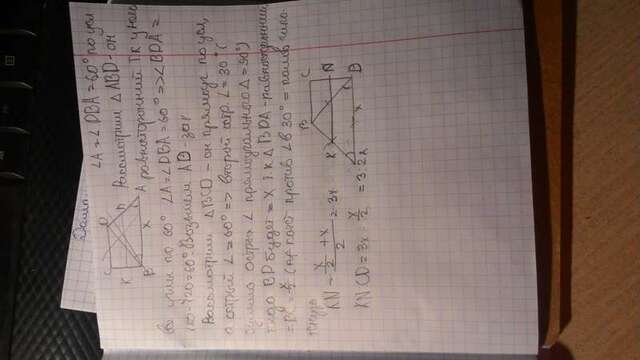 Дано:
∠A=∠DBA=60° по усл
Рассмотрим △ABD-он
равносторонний т.к у него
все углы по 60° ∠A=∠DBA=60° => ∠BDA =
180-120=60° Возьмем AD-за x
Рассмотрим △BCD-он прямоуг по усл,
а острый ∠=60° => второй остр ∠=30° (
сумма острых ∠ прямоугольного △=90°)
тогда BD будет = x т.к △BDA-равносторонний
=BC = x/2 (напротив ∠ в 30° = половине гипо-
тенузы
KN = (x/2 + x)/2 = 3x
KN CD = 3x : x/2 = 3:2
K
C
D
B
A
x
B
C
K
N
D
x